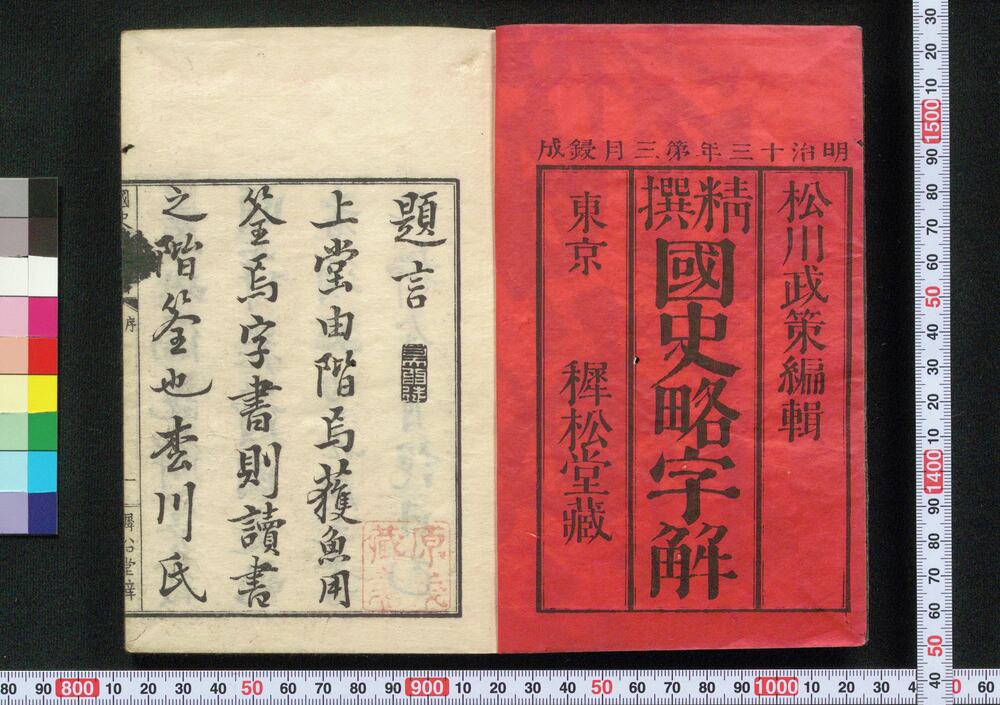 明治十三年第三月鋟成
松川政策編輯
精撰
國史略字解
東京
穉松堂藏
題言
上堂由階焉獲魚用
筌焉字書則讀書
之階筌也枩川氏
序
一
穉松堂梓
80 90 800 10 20 30 40 50 60 70 80 90 900 10 20 30 40 50 60 70 80 90 1000 10 20 30 4
60
30 20 10 1500 90 80 70 60 50 40 30 20 10 1400 90 80 70 60 50 40